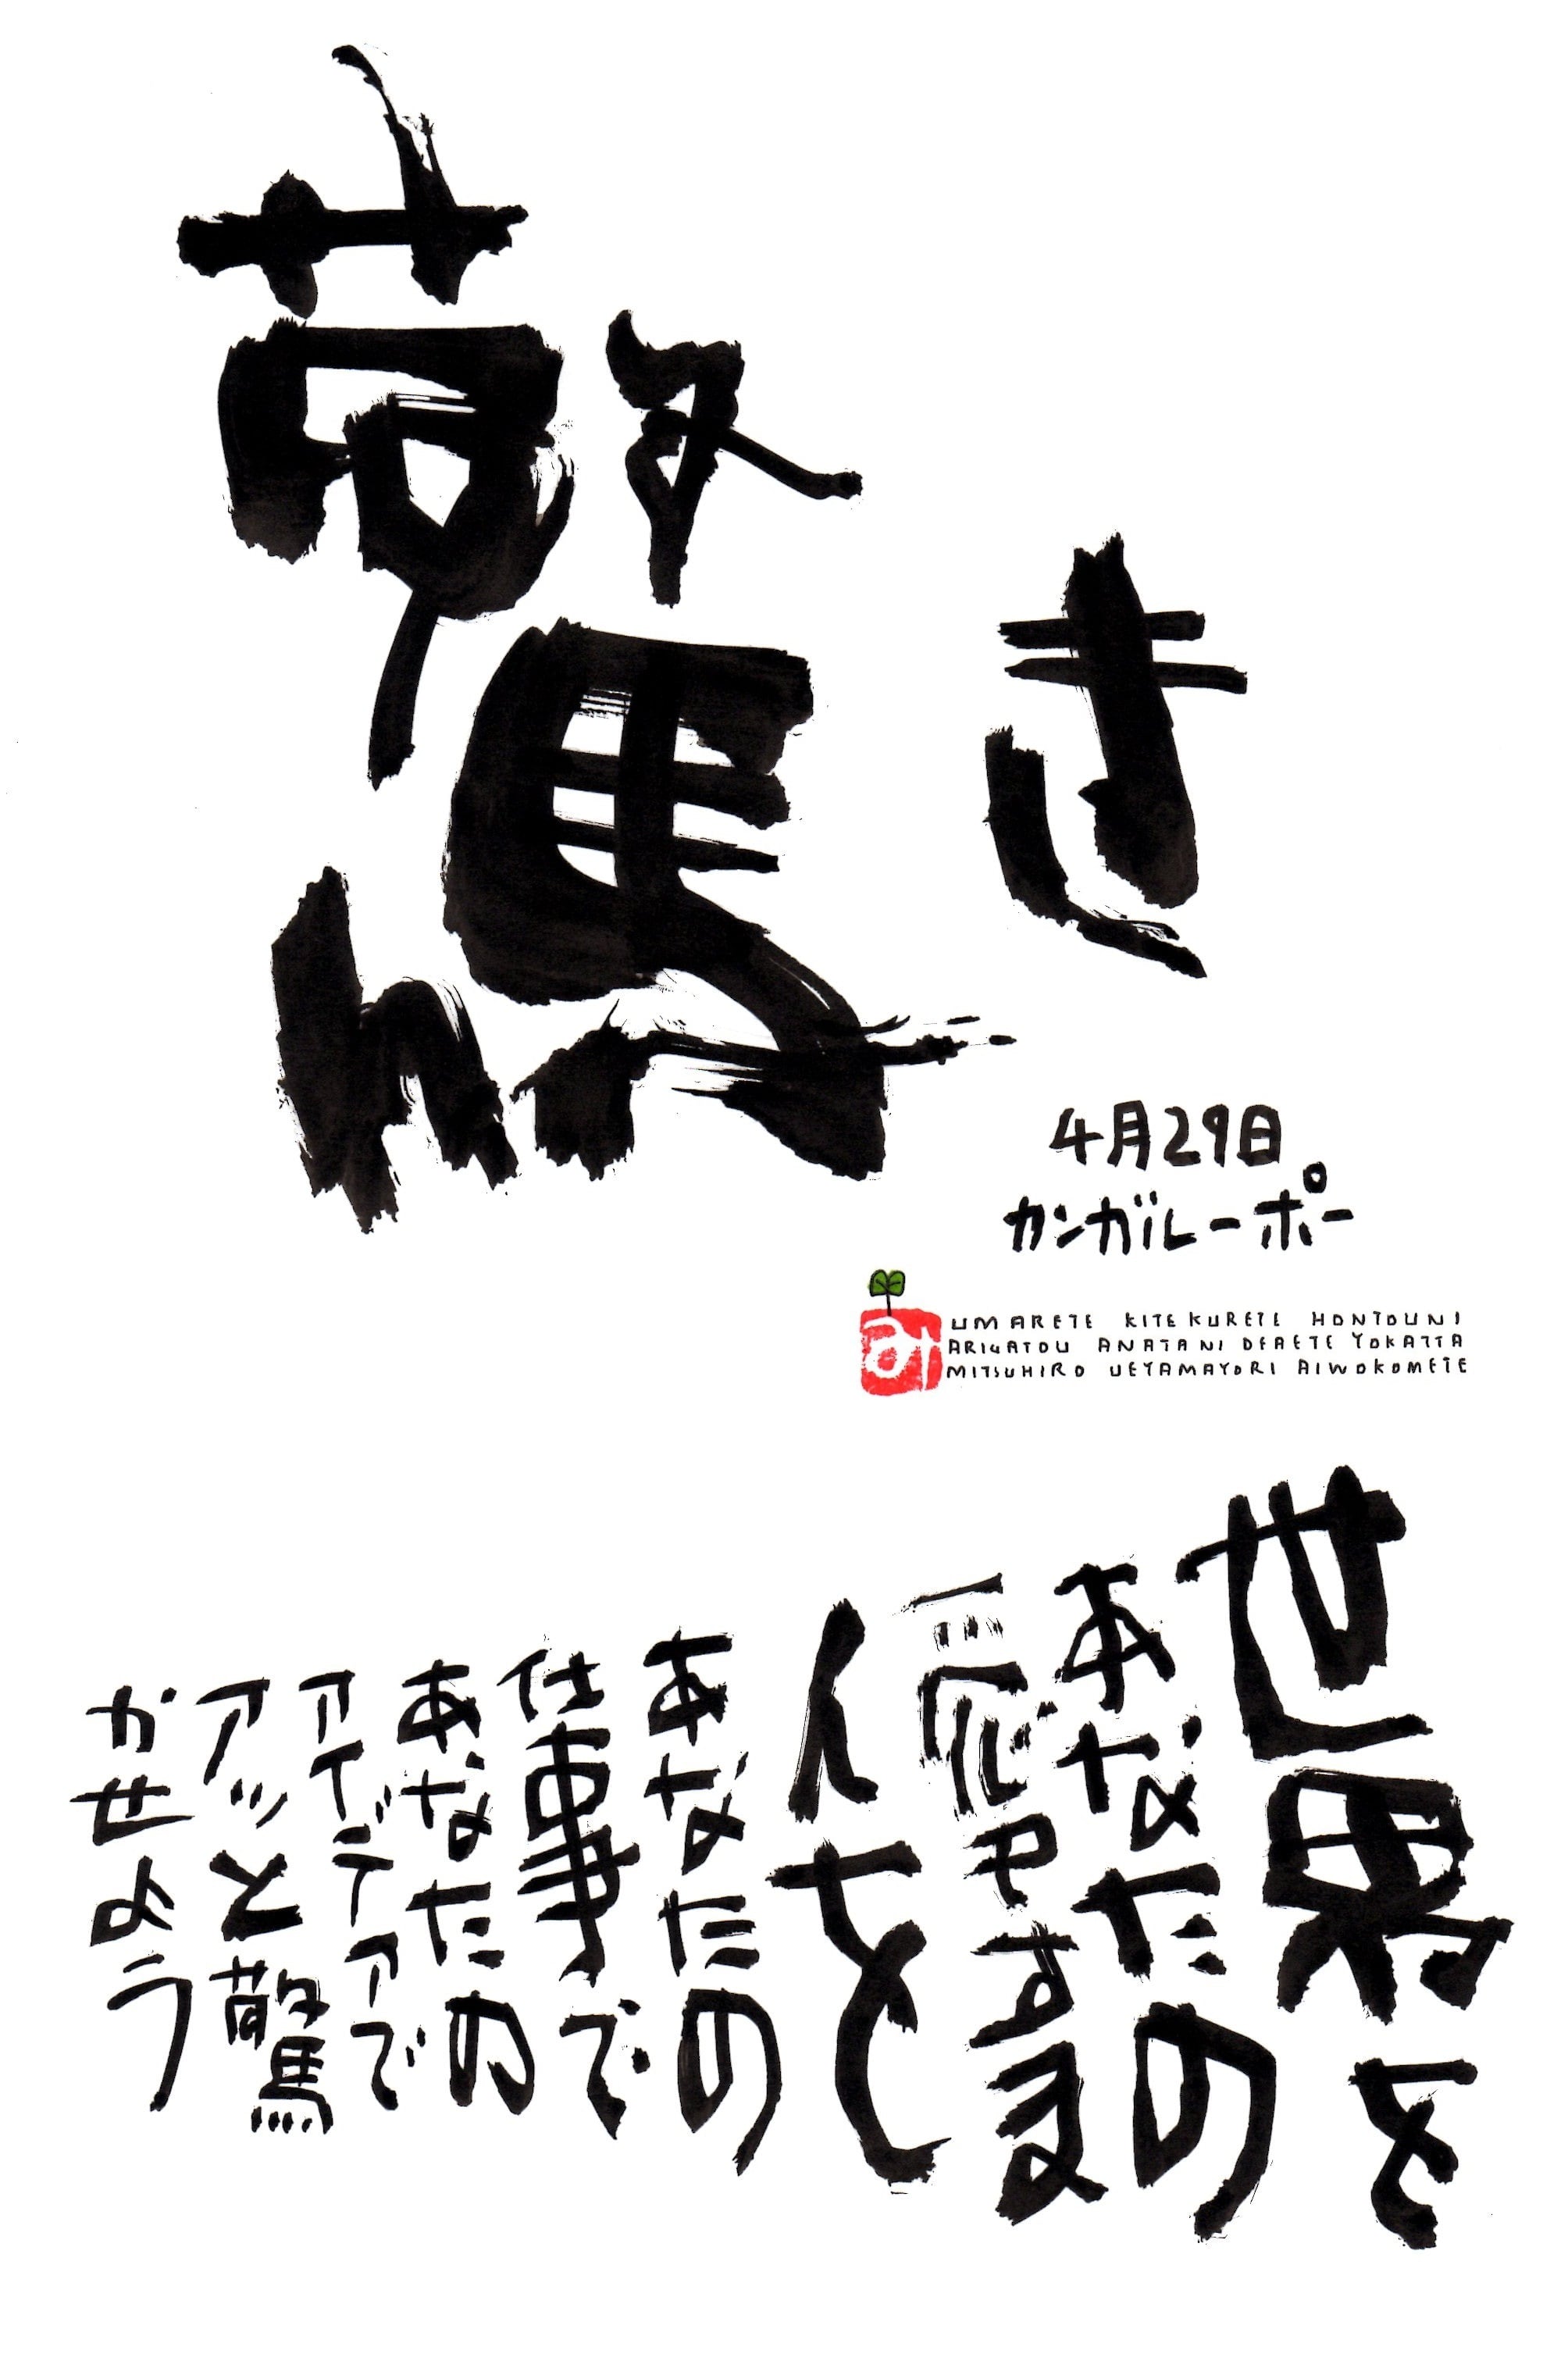 驚き
4月29日
カンガルーポー
UMARETE KITEKURETE HONTOUNI
ARIGATOU ANATANI DEAETE YOKATTA
MITSUHIRO UEYAMAYORI AIWOKOMETE
世界を
あなたの
愛する
人を
あなたの
仕事で
あなたの
アイデアで
アッと驚
かせよう